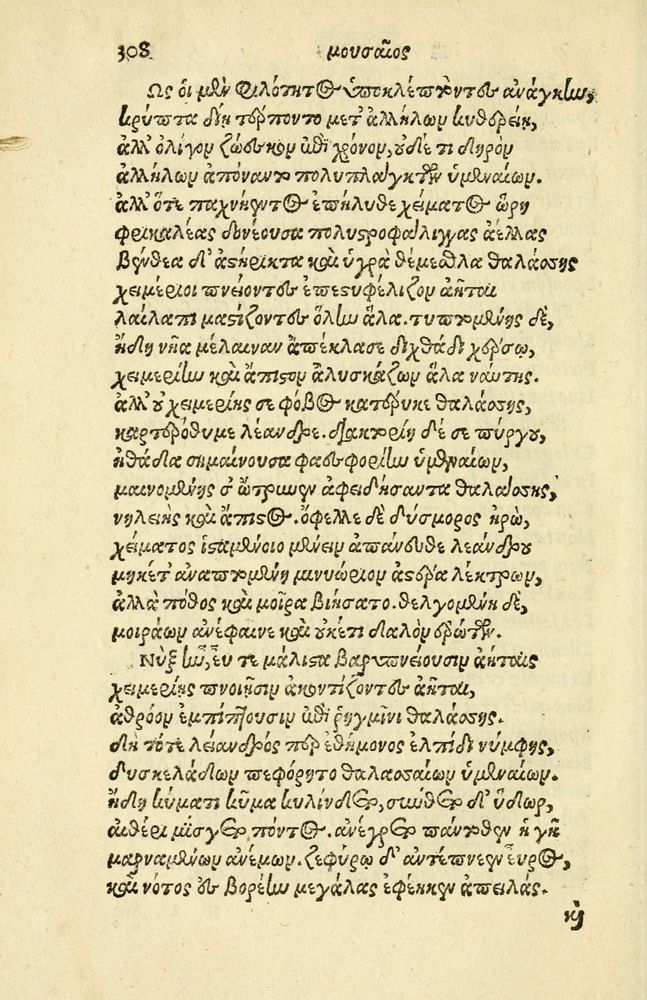 308 μουσαῖος
Ως ὁι μὲν φιλότητος ὑποκλέπτοντες ἀνάγκην,
κρύπτα δὴν τέρποντο μετ' ἀλλήλων κυθερείῃ,
ἀλλ' ὀλίγον ζώεσκον ἐπὶ χρόνον, οὐδέ τι δηρὸν
ἀλλήλων ἀπόναντο πολυπλάγκτων ὑμεναίων.
ἀλλ' ὅτε παχνήεντος ἐπήλυθε χείματος ὥρη
φρικαλέας δονέουσα πολυστροφάλιγγας ἀέλλας
βένθεα δ' ἀστήρικτα καὶ ὑγρὰ θέμεθλα θαλάσσης
χειμέριοι πνείοντες ἐπεστυφέλιζον ἀῆται
λαίλαπι μαστίζοντες ὅλην ἅλα. τυπτομένης δὲ,
ἤδη νῆα μέλαιναν ἀπέκλασε διχθάδι χέρσῳ,
χειμερίην καὶ ἄπιστον ἀλυσκάζων ἅλα ναύτης.
ἀλλ' οὐ χειμερίης σε φόβος κατέρυκε θαλάσσης,
καρτερόθυμε λέανδρε. διακτορίη δέ σε πύργου,
ἠθάδα σημαίνουσα φαεσφορίην ὑμεναίων,
μαινομένης σ' ὤτρυνεν ἀφειδήσαντα θαλάσσης,
νηλειὴς καὶ ἄπιστος. ὄφελλε δὲ δύσμορος ἡρὼ,
χείματος ἱσταμένοιο μένειν ἀπάνευθε λεάνδρου
μηκέτ' ἀναπτομένη μινυώριον ἀστέρα λέκτρων,
ἀλλὰ πόθος καὶ μοῖρα βιήσατο. θελγομένη δὲ,
μοιράων ἀνέφαινε καὶ οὐκέτι δαλὸν ἐρώτων.
Νὺξ ἦν, εὖ τε μάλιστα βαρυπνείουσιν ἀήταις
χειμερίῃς πνοιῇσιν ἀκοντίζοντες ἀῆται,
ἀθρόον ἐμπίπτουσιν ἐπὶ ῥηγμῖνι θαλάσσης.
δὴ τότε λέανδρός περ ἐθήμονος ἐλπίδι νύμφης,
δυσκελάδων πεφόρητο θαλασσαίων ὑμεναίων.
ἤδη κύματι κῦμα κυλίνδετο, σύνθετο δ' ὕδωρ,
αἰθέρι μίσγετο πόντος. ἀνέγρετο πάντοθεν ἠ γῆ
μαρναμένων ἀνέμων. ζεφύρῳ δ' ἀντέπνεεν εὖρος,
καὶ νότος ἐς βορέην μεγάλας ἐφέηκεν ἀπειλάς.
κὶ